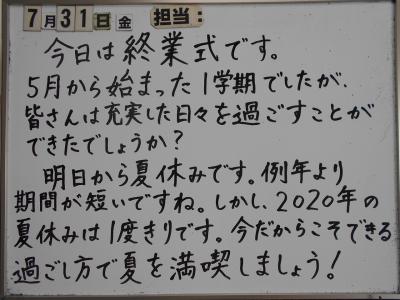 7月31日金 担当:
今日は終業式です。
5月から始まった1学期でしたが、
皆さんは充実した日々を過ごすことが
できたでしょうか?
明日から夏休みです。例年より
期間が短いですね。しかし、2020年の
夏休みは1度きりです。今だからこそできる
過ごし方で夏を満喫しましょう!